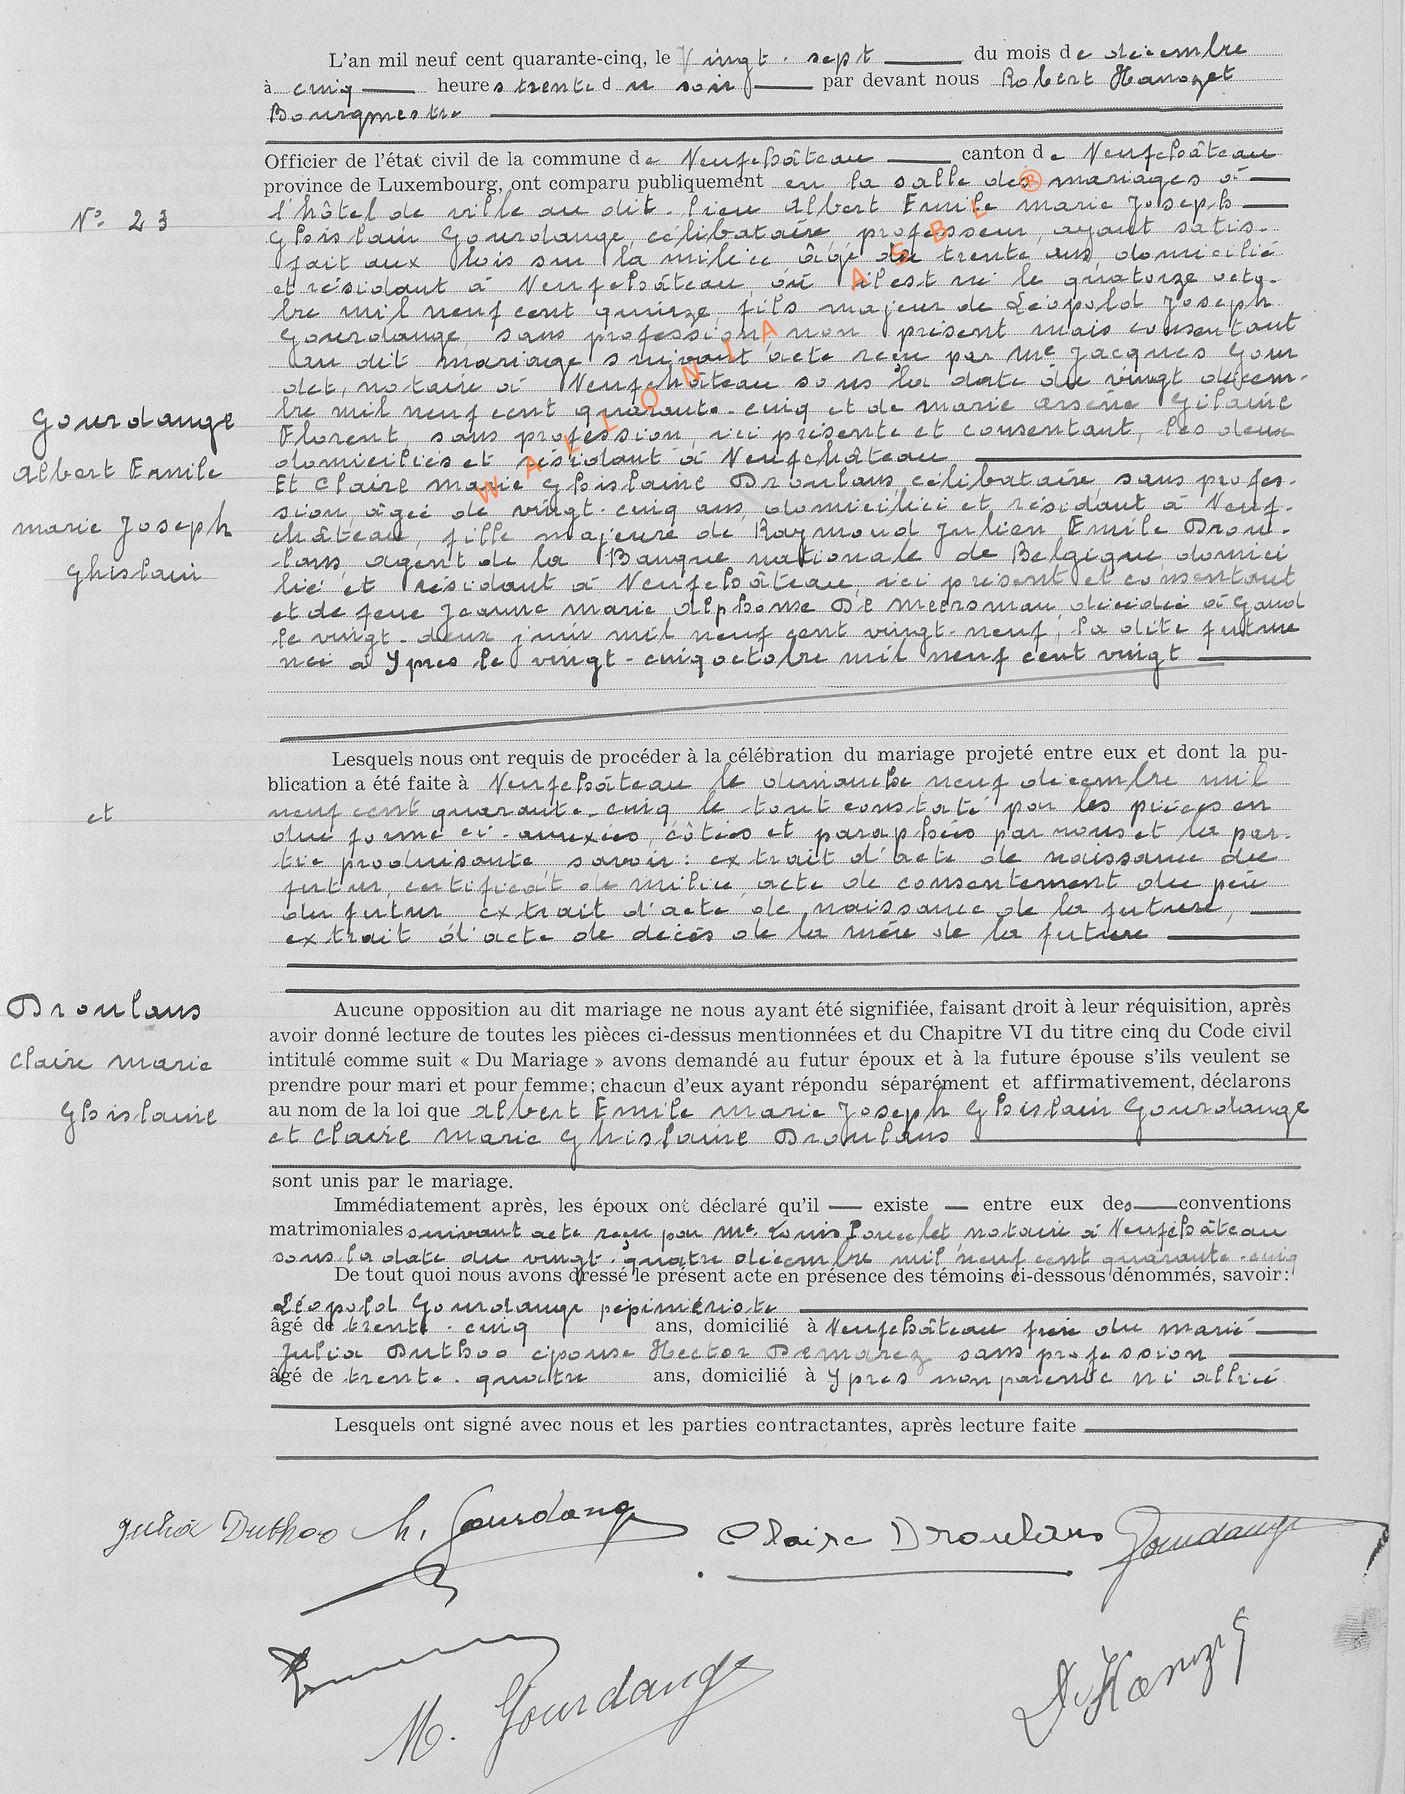 L'an mil neuf cent quarante-cinq, le Vingt-sept du mois de décembre
à cinq heures trente du soir par devant nous Robert Hanozet
Bourgmestre
Officier de l'état civil de la commune de Neufchâteau canton de Neufchâteau
province de Luxembourg, ont comparu publiquement en la salle des mariages à
N° 23
l'hôtel de ville au dit-lieu Albert Emile Marie Joseph
Ghislain Gourdange, célibataire, professeur, ayant satis-
fait aux lois sur la milice, âgé de trente ans, domicilié
et résidant à Neufchâteau, où il est né le quatorze octo-
bre mil neuf cent quinze, fils majeur de Léopold Joseph
Gourdange, sans profession, non présent mais consentant
au dit mariage suivant acte reçu par Me Jacques Gour
det, notaire à Neufchâteau sous la date du vingt décem-
bre mil neuf cent quarante-cinq et de Marie Arsène Gilaine
Florent, sans profession, ici présente et consentant, les deux
domiciliés et résidant à Neufchâteau
WALLONIA ASBL ®
Gourdange
Albert Emile
Marie Joseph
Ghislain
Et Claire Marie Ghislaine Droulans, célibataire, sans profes-
sion, âgée de vingt-cinq ans, domiciliée et résidant à Neuf-
château, fille majeure de Raymond Julien Emile Drou-
lans, agent de la Banque nationale de Belgique, domici
lié et résidant à Neufchâteau, ici présent et consentant
et de feue Jeanne Marie Alphonse De Meersman, décédée à Gand
le vingt-deux juin mil neuf cent vingt-neuf; la dite future
née à Ypres le vingt-cinq octobre mil neuf cent vingt
Lesquels nous ont requis de procéder à la célébration du mariage projeté entre eux et dont la pu-
blication a été faite à Neufchâteau le dimanche neuf décembre mil
neuf cent quarante-cinq le tout constaté par les pièces en
due forme ci-annexées, côtées et paraphées par nous et la par-
tie produisante, savoir: extrait d'acte de naissance du
futur, certificat de milice, acte de consentement du père
du futur extrait d'acte de naissance de la future,
extrait d'acte de décès de la mère de la future
et
Droulans
Claire Marie
Ghislaine
Aucune opposition au dit mariage ne nous ayant été signifiée, faisant droit à leur réquisition, après
avoir donné lecture de toutes les pièces ci-dessus mentionnées et du Chapitre VI du titre cinq du Code civil
intitulé comme suit « Du Mariage » avons demandé au futur époux et à la future épouse s'ils veulent se
prendre pour mari et pour femme; chacun d'eux ayant répondu séparément et affirmativement, déclarons
au nom de la loi que Albert Emile Marie Joseph Ghislain Gourdange
et Claire Marie Ghislaine Droulans
sont unis par le mariage.
Immédiatement après, les époux ont déclaré qu'il existe entre eux des conventions
matrimoniales suivant acte reçu par Me Louis Poncelet notaire à Neufchâteau
sous la date du vingt-quatre décembre mil neuf cent quarante-cinq
De tout quoi nous avons dressé le présent acte en présence des témoins ci-dessous dénommés, savoir:
Léopold Gourdange pépiniériste
âgé de trente-cinq ans, domicilié à Neufchâteau frère du marié
Julia Duthoo épouse Hector Demarez sans profession
âgé de trente-quatre ans, domicilié à Ypres non parente ni alliée
Lesquels ont signé avec nous et les parties contractantes, après lecture faite
Julia Duthoo Gourdange Claire Droulans Gourdange
M. Gourdange